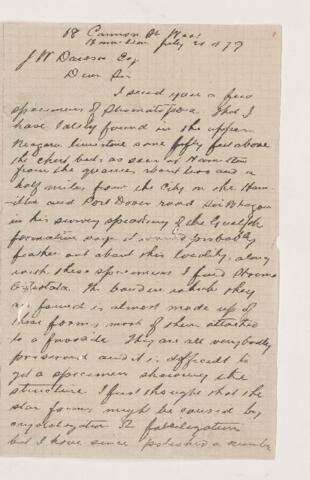 68 Cannon St West
Hamilton July 21 1877
J W Dawson Esq
Dear Sir
I send you a few
specimens of Stromatopora. that I
have lately found in the upper
Niagara limestone some fifty feet above
the Chert beds as seen at Hamilton
from the quarries about two and a
half miles from the City on the Ham-
ilton and Port Dover road Sir Wm Logan
in his survey speaking of the Guelph
formation says it would probably
feather out about this locality, along
with these specimens I find Stroma
the band in which they
are found is almost made up of
these forms most of them attached
to a favosite They are all very badly
preserved and it is difficult to
get a specimen showing the
structure I first thought that the
star forms might be caused by
crystalization
but I have since polished a number